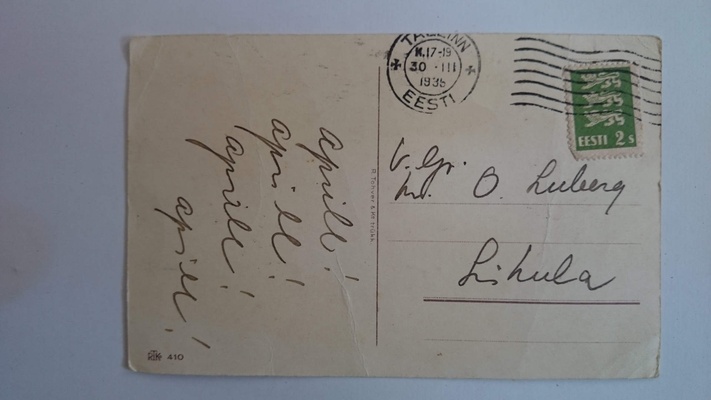 aprill!
aprill!
aprill!
aprill!
R. Tohver & Ko. trükk.
410
TALLINN
K.17-19
30 · III
1936
EESTI
EESTI 2 s
V. Gr.
hr. O. Luberg
Lihula